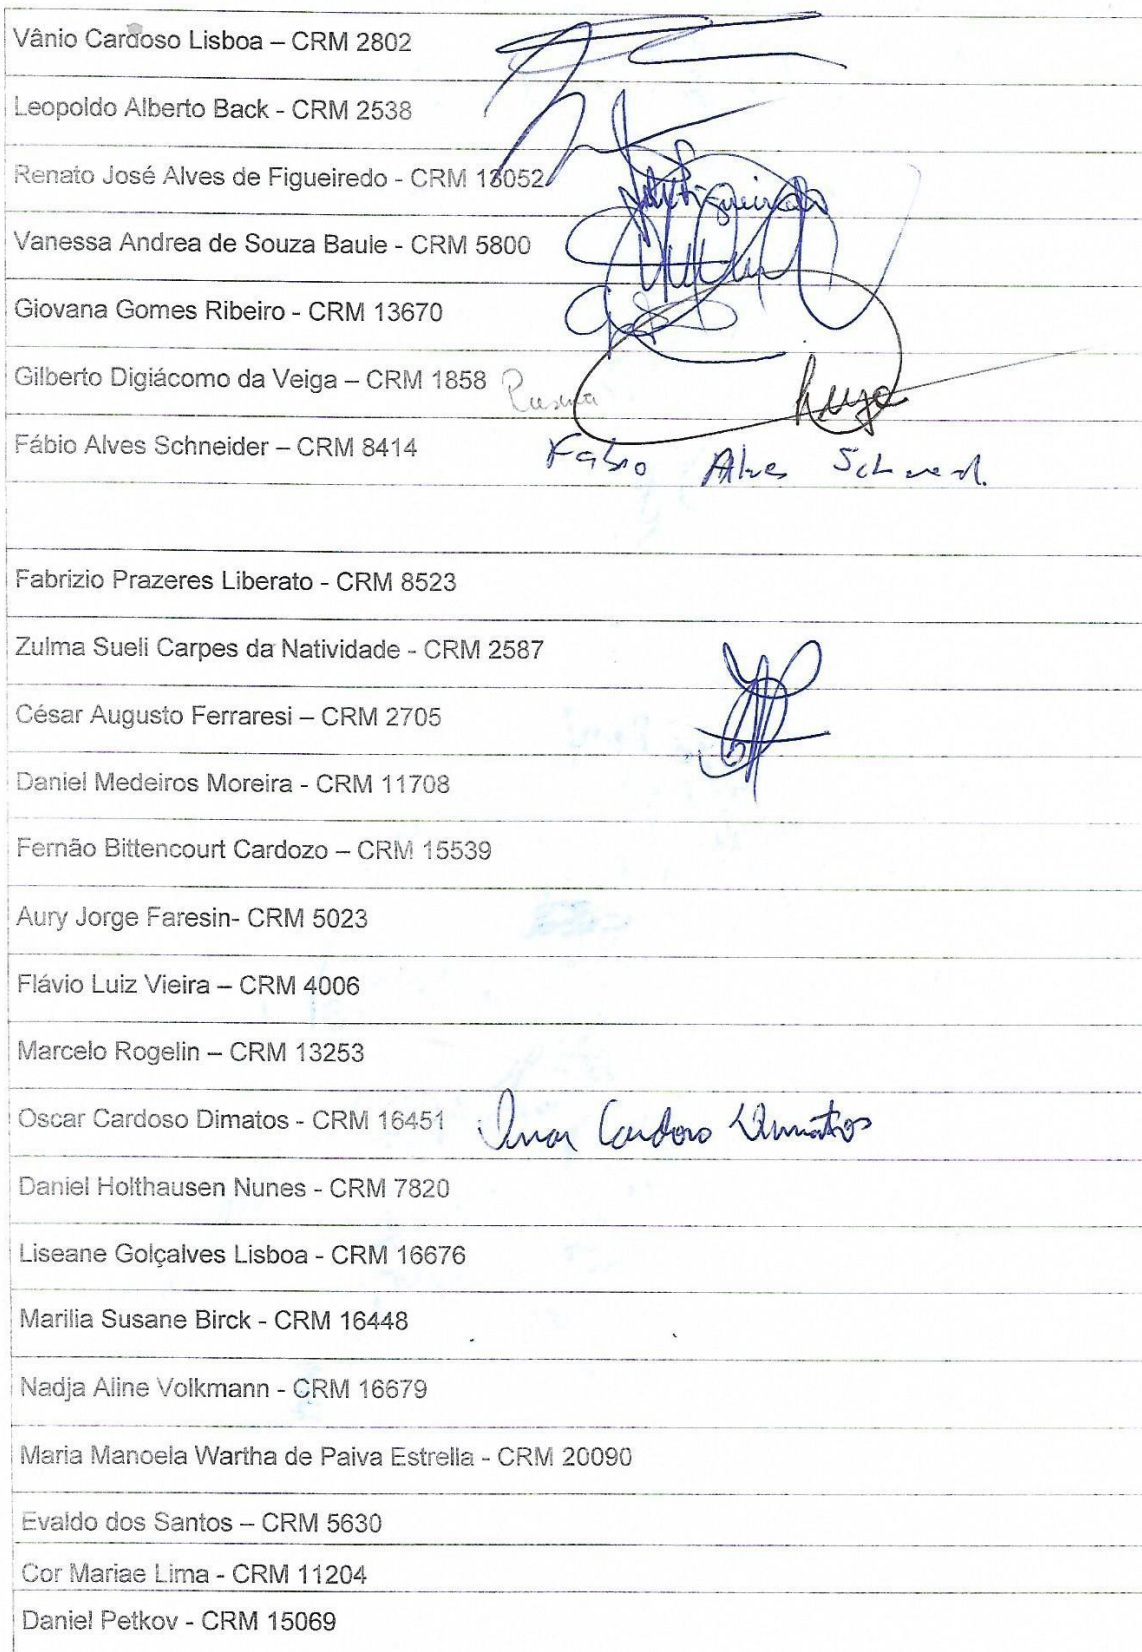 Vânio Cardoso Lisboa – CRM 2802
Leopoldo Alberto Back - CRM 2538
Renato José Alves de Figueiredo - CRM 13052
Vanessa Andrea de Souza Baule - CRM 5800
Giovana Gomes Ribeiro - CRM 13670
Gilberto Digiácomo da Veiga – CRM 1858
Fábio Alves Schneider – CRM 8414 Fabio Alves
Fabrizio Prazeres Liberato - CRM 8523
Zulma Sueli Carpes da Natividade - CRM 2587
César Augusto Ferraresi – CRM 2705
Daniel Medeiros Moreira - CRM 11708
Fernão Bittencourt Cardozo – CRM 15539
Aury Jorge Faresin- CRM 5023
Flávio Luiz Vieira – CRM 4006
Marcelo Rogelin – CRM 13253
Oscar Cardoso Dimatos - CRM 16451 Oscar Cardoso Dimatos
Daniel Holthausen Nunes - CRM 7820
Liseane Golçalves Lisboa - CRM 16676
Marilia Susane Birck - CRM 16448
Nadja Aline Volkmann - CRM 16679
Maria Manoela Wartha de Paiva Estrella - CRM 20090
Evaldo dos Santos – CRM 5630
Cor Mariae Lima - CRM 11204
Daniel Petkov - CRM 15069